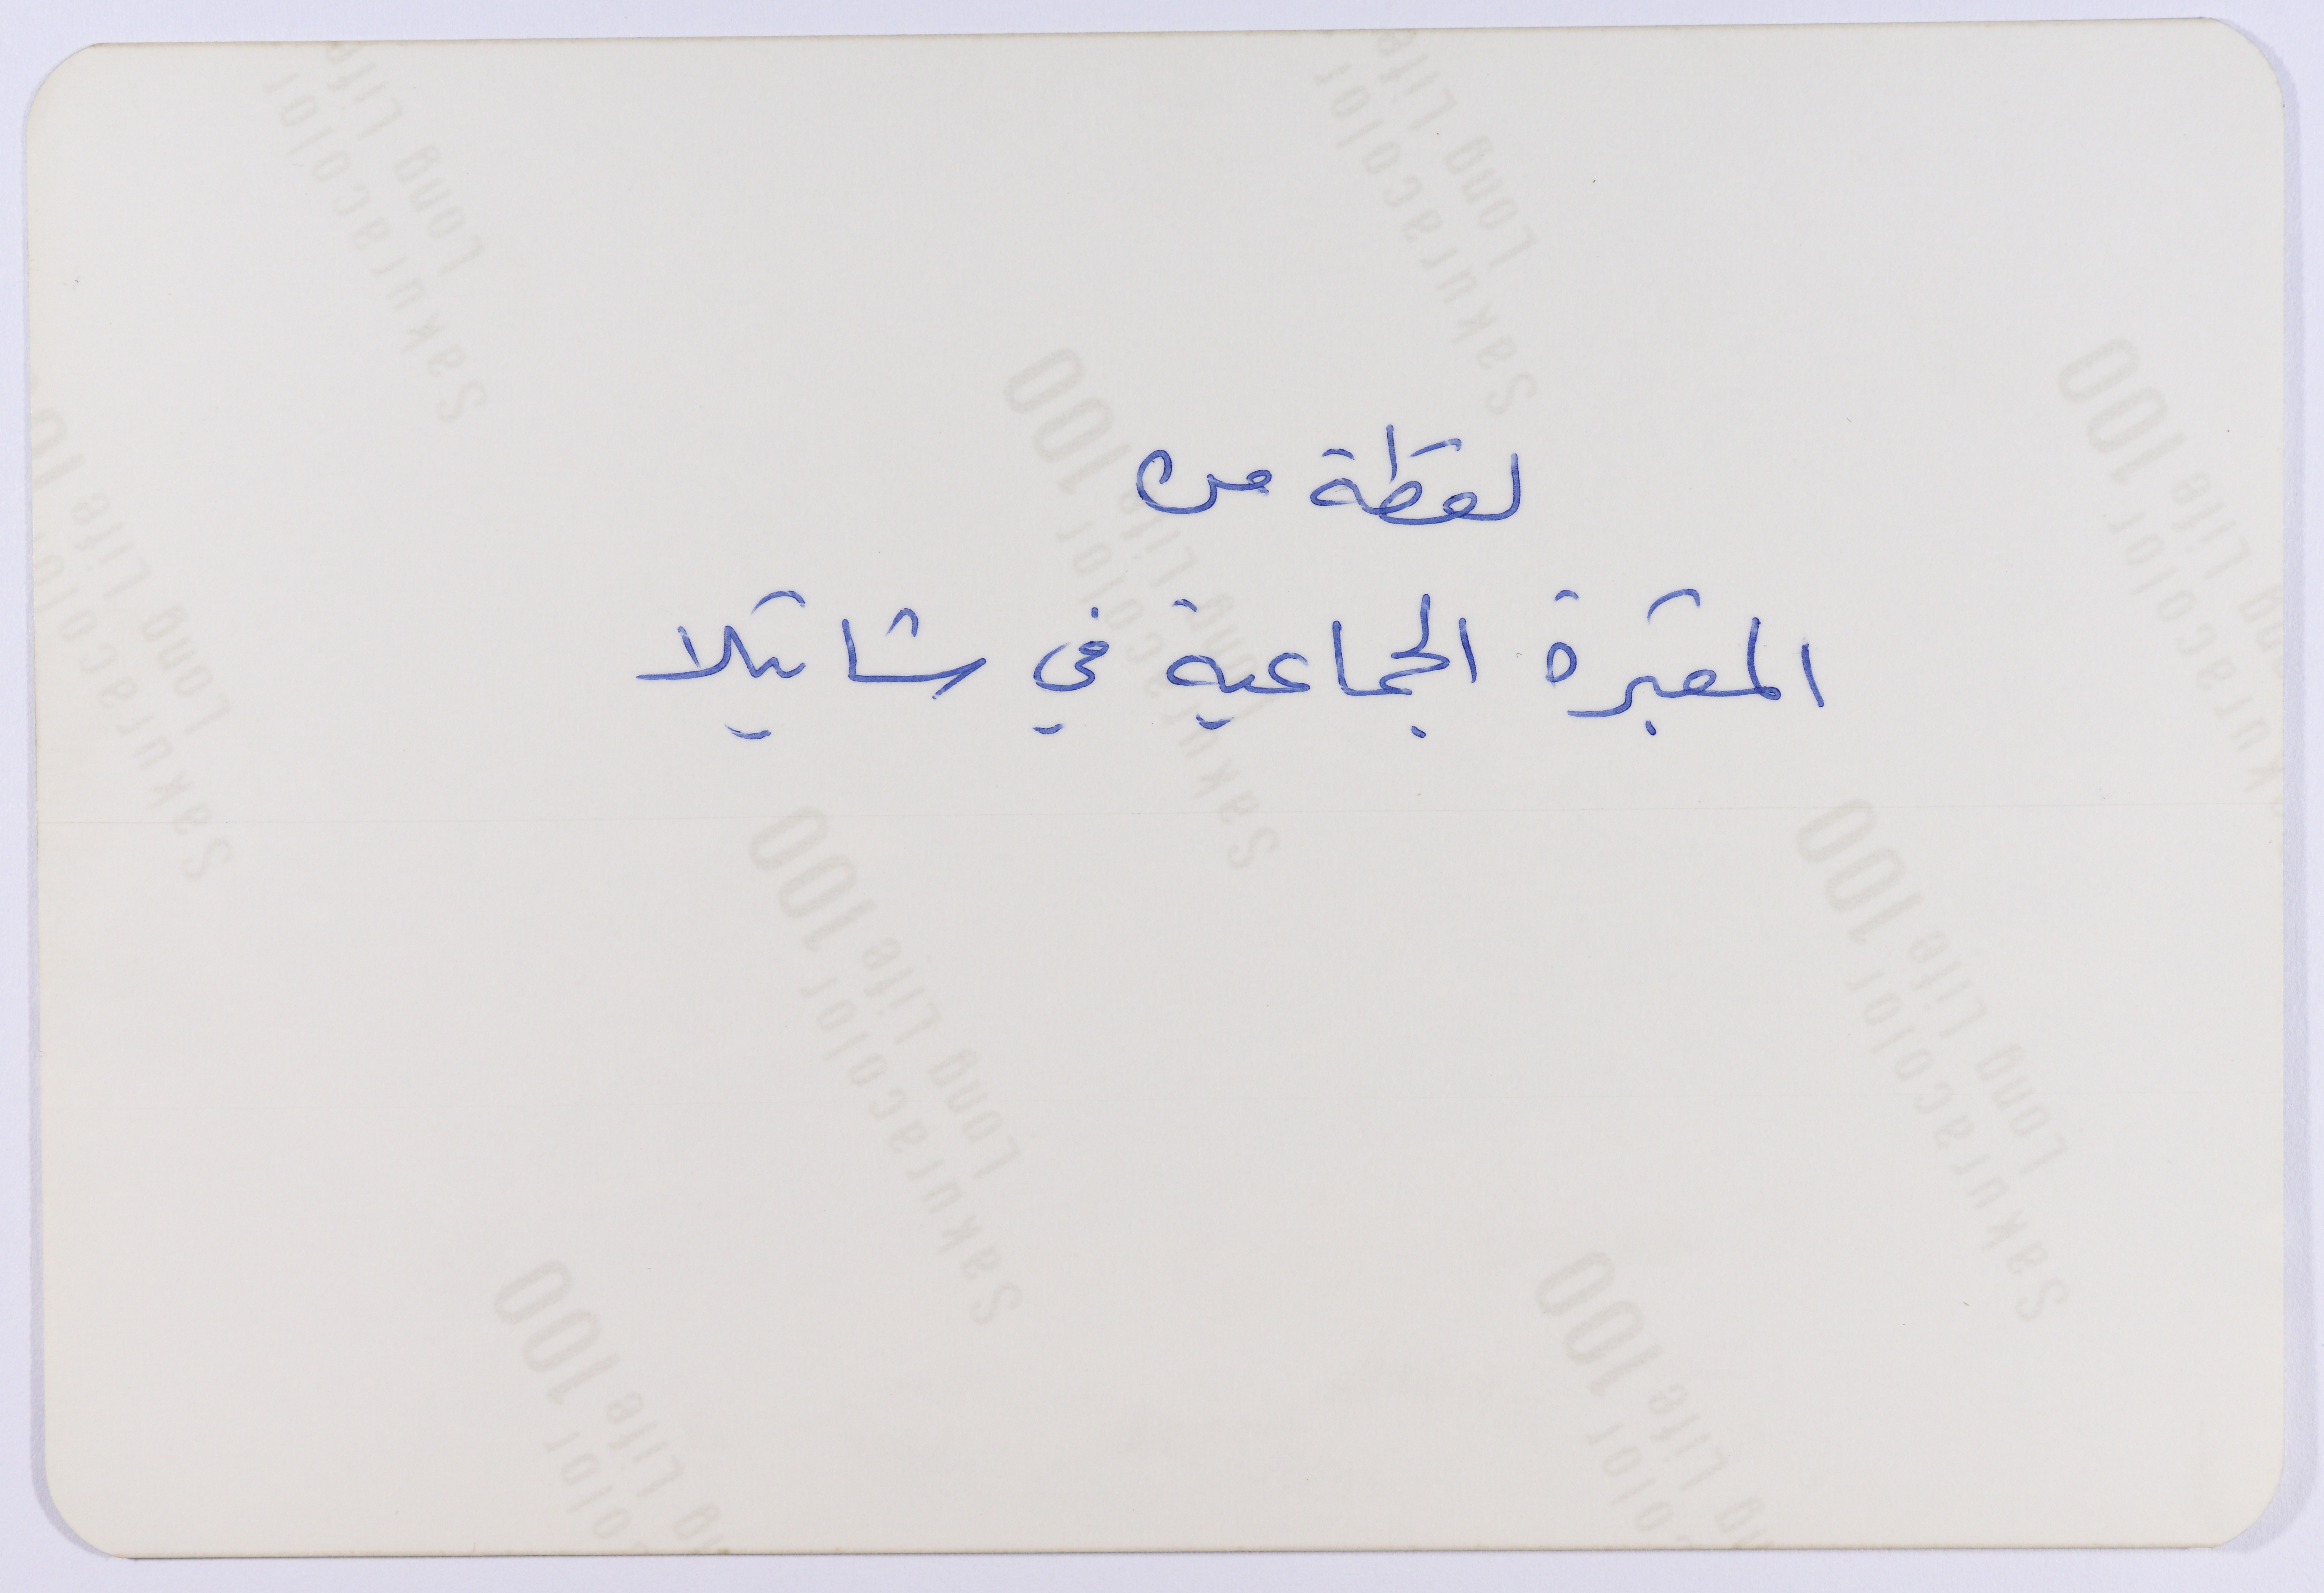 لقطة من
المقبرة الجماعية في شاتيلا
Sakuracolor
Long Life 100